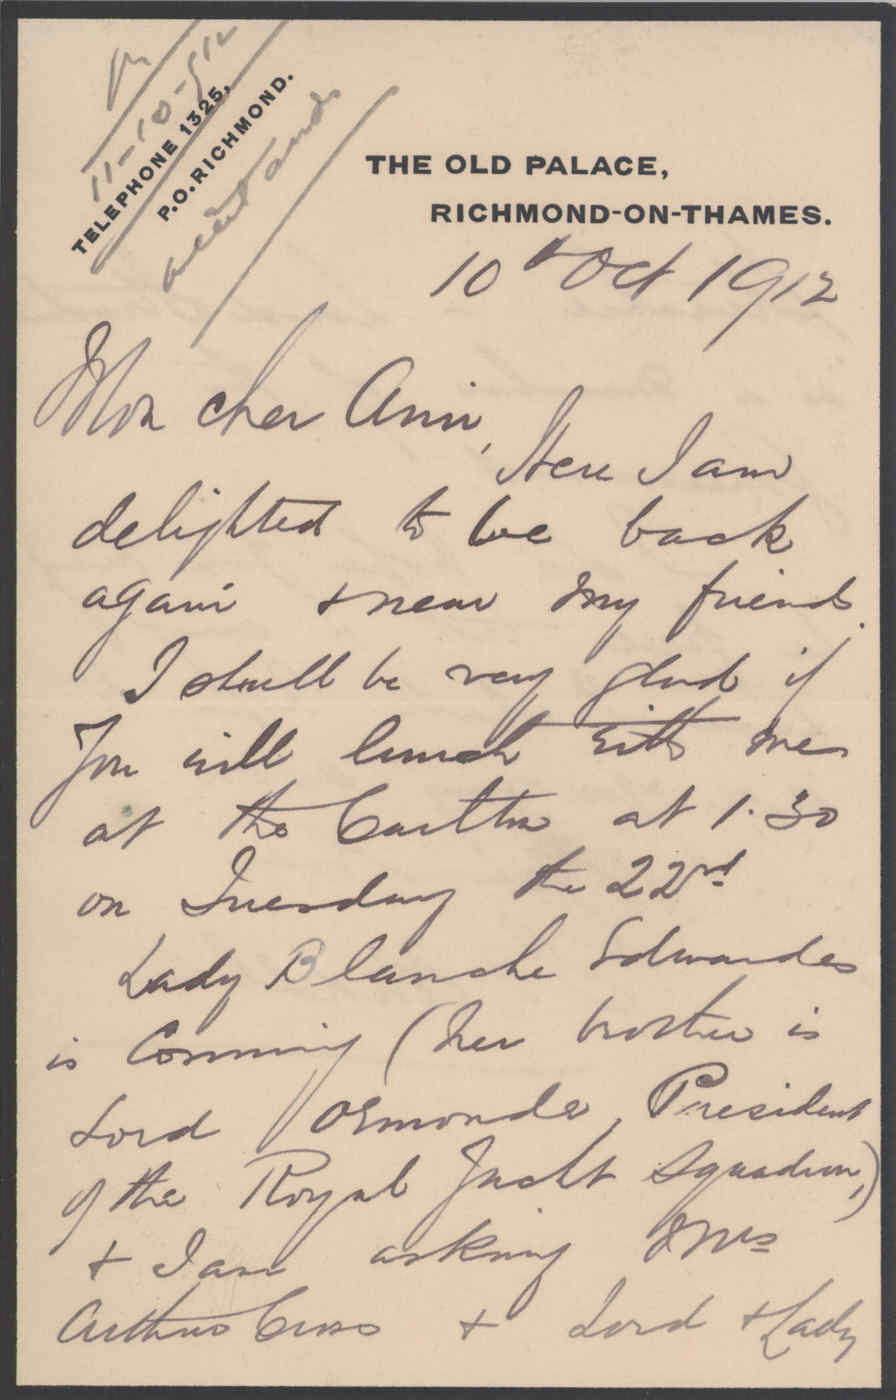 11-10-912
TELEPHONE 1325,
P.O. RICHMOND.
THE OLD PALACE,
RICHMOND-ON-THAMES.
10th Oct 1912
Mon cher Ami,
Here I am
delighted to be back
again & near my friends.
I shall be very glad if
you will lunch with me
at the Carlton at 1.30
on Tuesday the 22nd
Lady Blanche Edwardes
is Comming (her brother is
Lord Ormonde, President
of the Royal Yacht Squadron,)
& I am asking Mrs
Arthur Cross & Lord & Lady